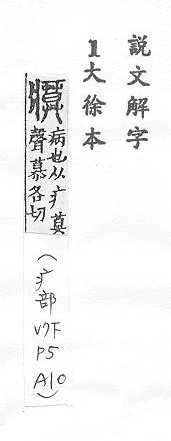 說文解字
1大徐本
瘼 病也从疒莫
聲慕各切
(疒部
V7下
P5
A10)